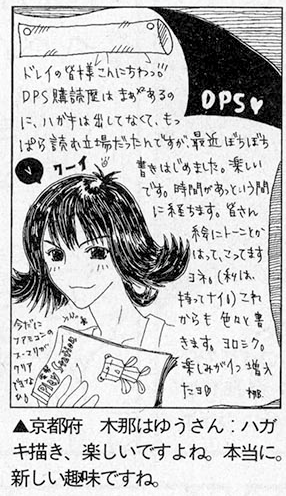 ドレイの皆様こんにちわっ。
DPS購読歴はまぁやあるの
に、ハガキは出してなくて、もっ
ぱら読む立場だったんですが、最近ぼちぼち
書きはじめました。楽しい
です。時間があっという間
に経ちます。皆さん
絵にトーンとか
はって、こってます
ヨネ。(私は、
持ってナイ。)これ
からも色々と書
きます。ヨロシク。
楽しみがイっ増え
たヨロ
DPS♥
ワーイ
今だに
ファミコンの
ス-マリが
クリア
できな
▲京都府　木那はゆうさん：ハガ
キ描き、楽しいですよね。本当に。
新しい趣味ですね。